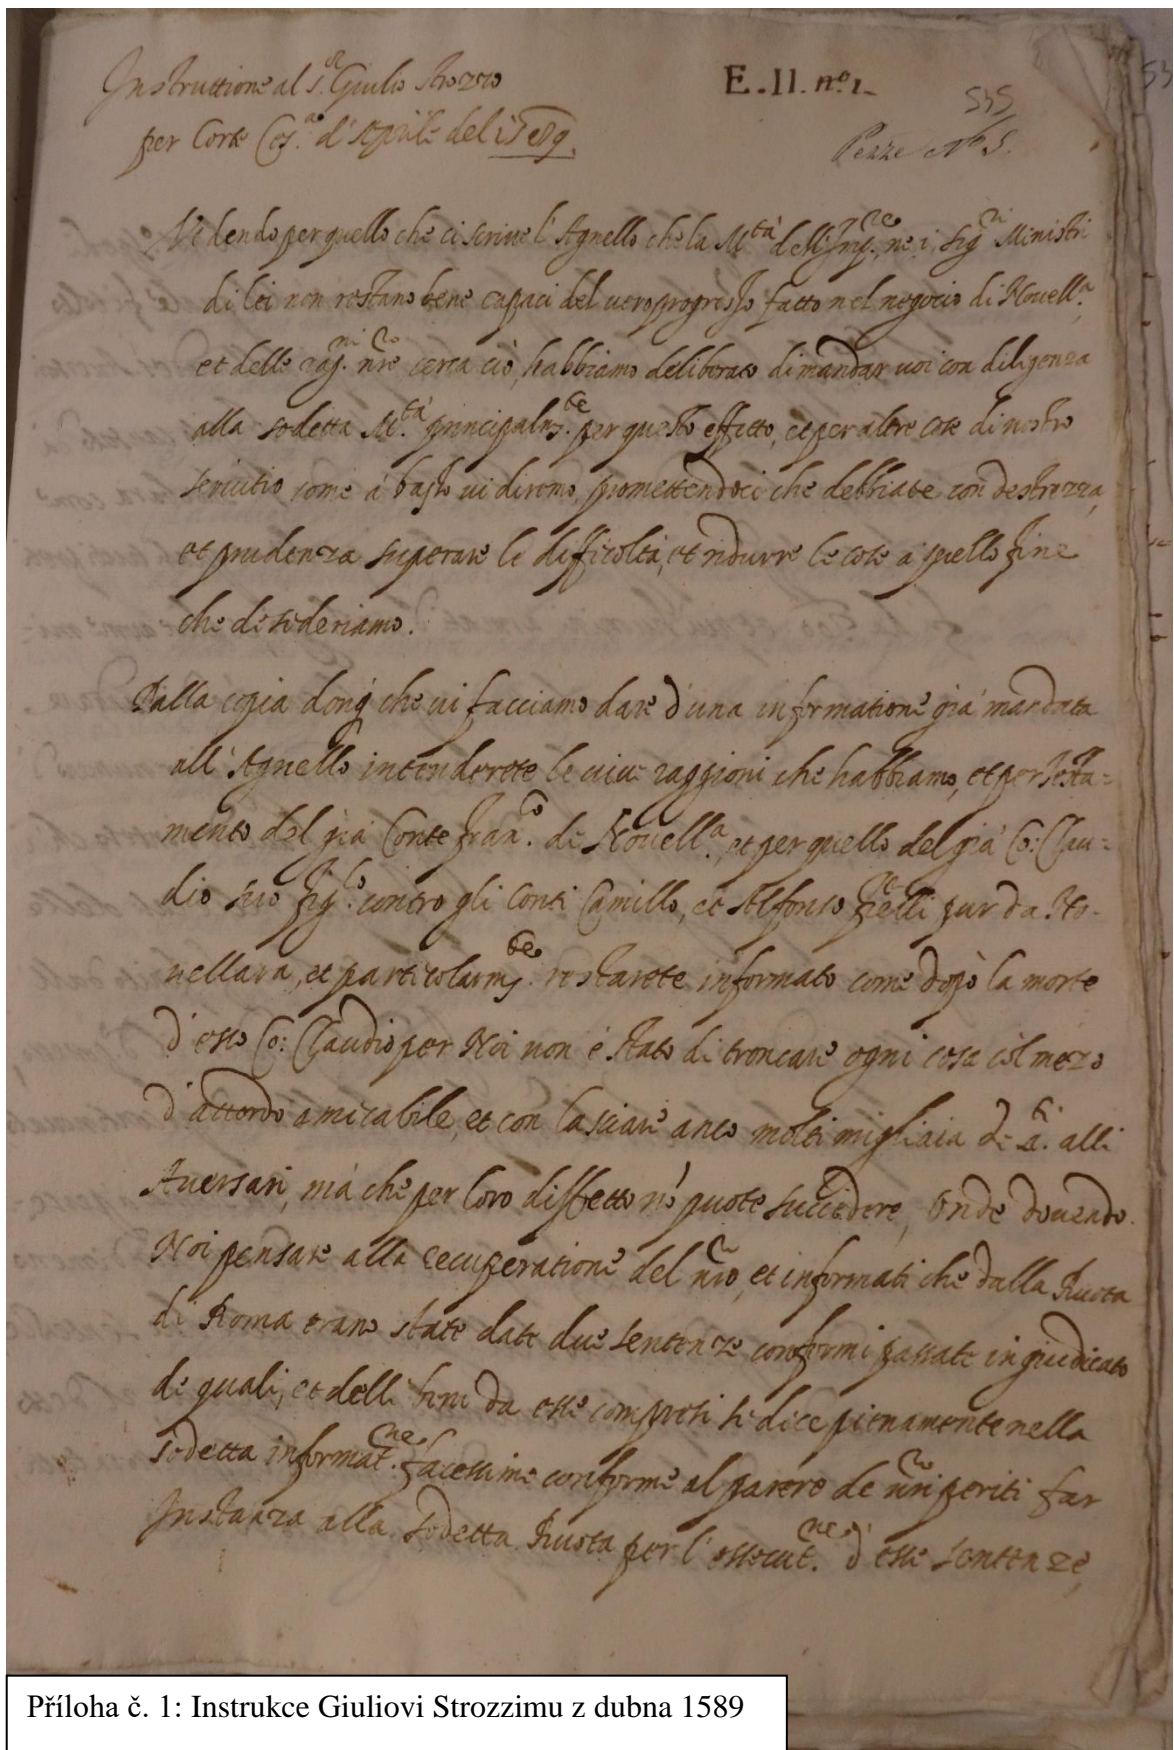 Instruttione al s.or Giulio Strozzo
per Corte Ces.a d'Aprile del 1589.
E.II. n.o 1.
535
Pezze No 5.
53
Vedendo per quello che ci scrive l'Agnello che la M.tà dell'Imp.re, ne i sig.ri Ministri
di lei non restano bene capaci del vero progresso fatto nel negocio di Novell.a
et delle rag.ni nre cerca ciò, habbiamo deliberato di mandar voi con diligenza
alla sodetta M.tà principalm.te per questo effetto, et per altre cose di nostro
servitio come à basso vi diremo, promettendoci che debbiate con destrezza,
et prudenza superare le difficoltà, et ridurre le cose a quello fine
che desideriamo.
Dalla copia donq che vi facciamo dare d'una informatione già mandata
all'Agnello intenderete le vive raggioni che habbiamo, et per testa=
mento del già Conte Fran.co di Novell.a, et per quello del già Co: Clau=
dio suo fig.lo contro gli Conti Camillo, et Alfonso frelli pur da No-
vellara, et particolarm.te restarete informato come dopò la morte
d'esso Co: Claudio per Noi non è stato di troncare ogni cosa col mezo
d'accordo amicabile, et con lasciare anco molti migliaia di ∆.ti alli
Aversari, mà che per loro diffetto nō puote succedere, Onde dovendo
Noi pensare alla recuperatione del nro, et informati che dalla Ruota
di Roma erano state date due sentenze conformi passate in giudicato
de quali, et delli beni da esse compresi si dice pienamente nella
sodetta informat.ne facessimo conforme al parere de nri periti far
Instanza alla sodetta Ruota per l'essecut.ne d'esse sentenze,
Příloha č. 1: Instrukce Giuliovi Strozzimu z dubna 1589